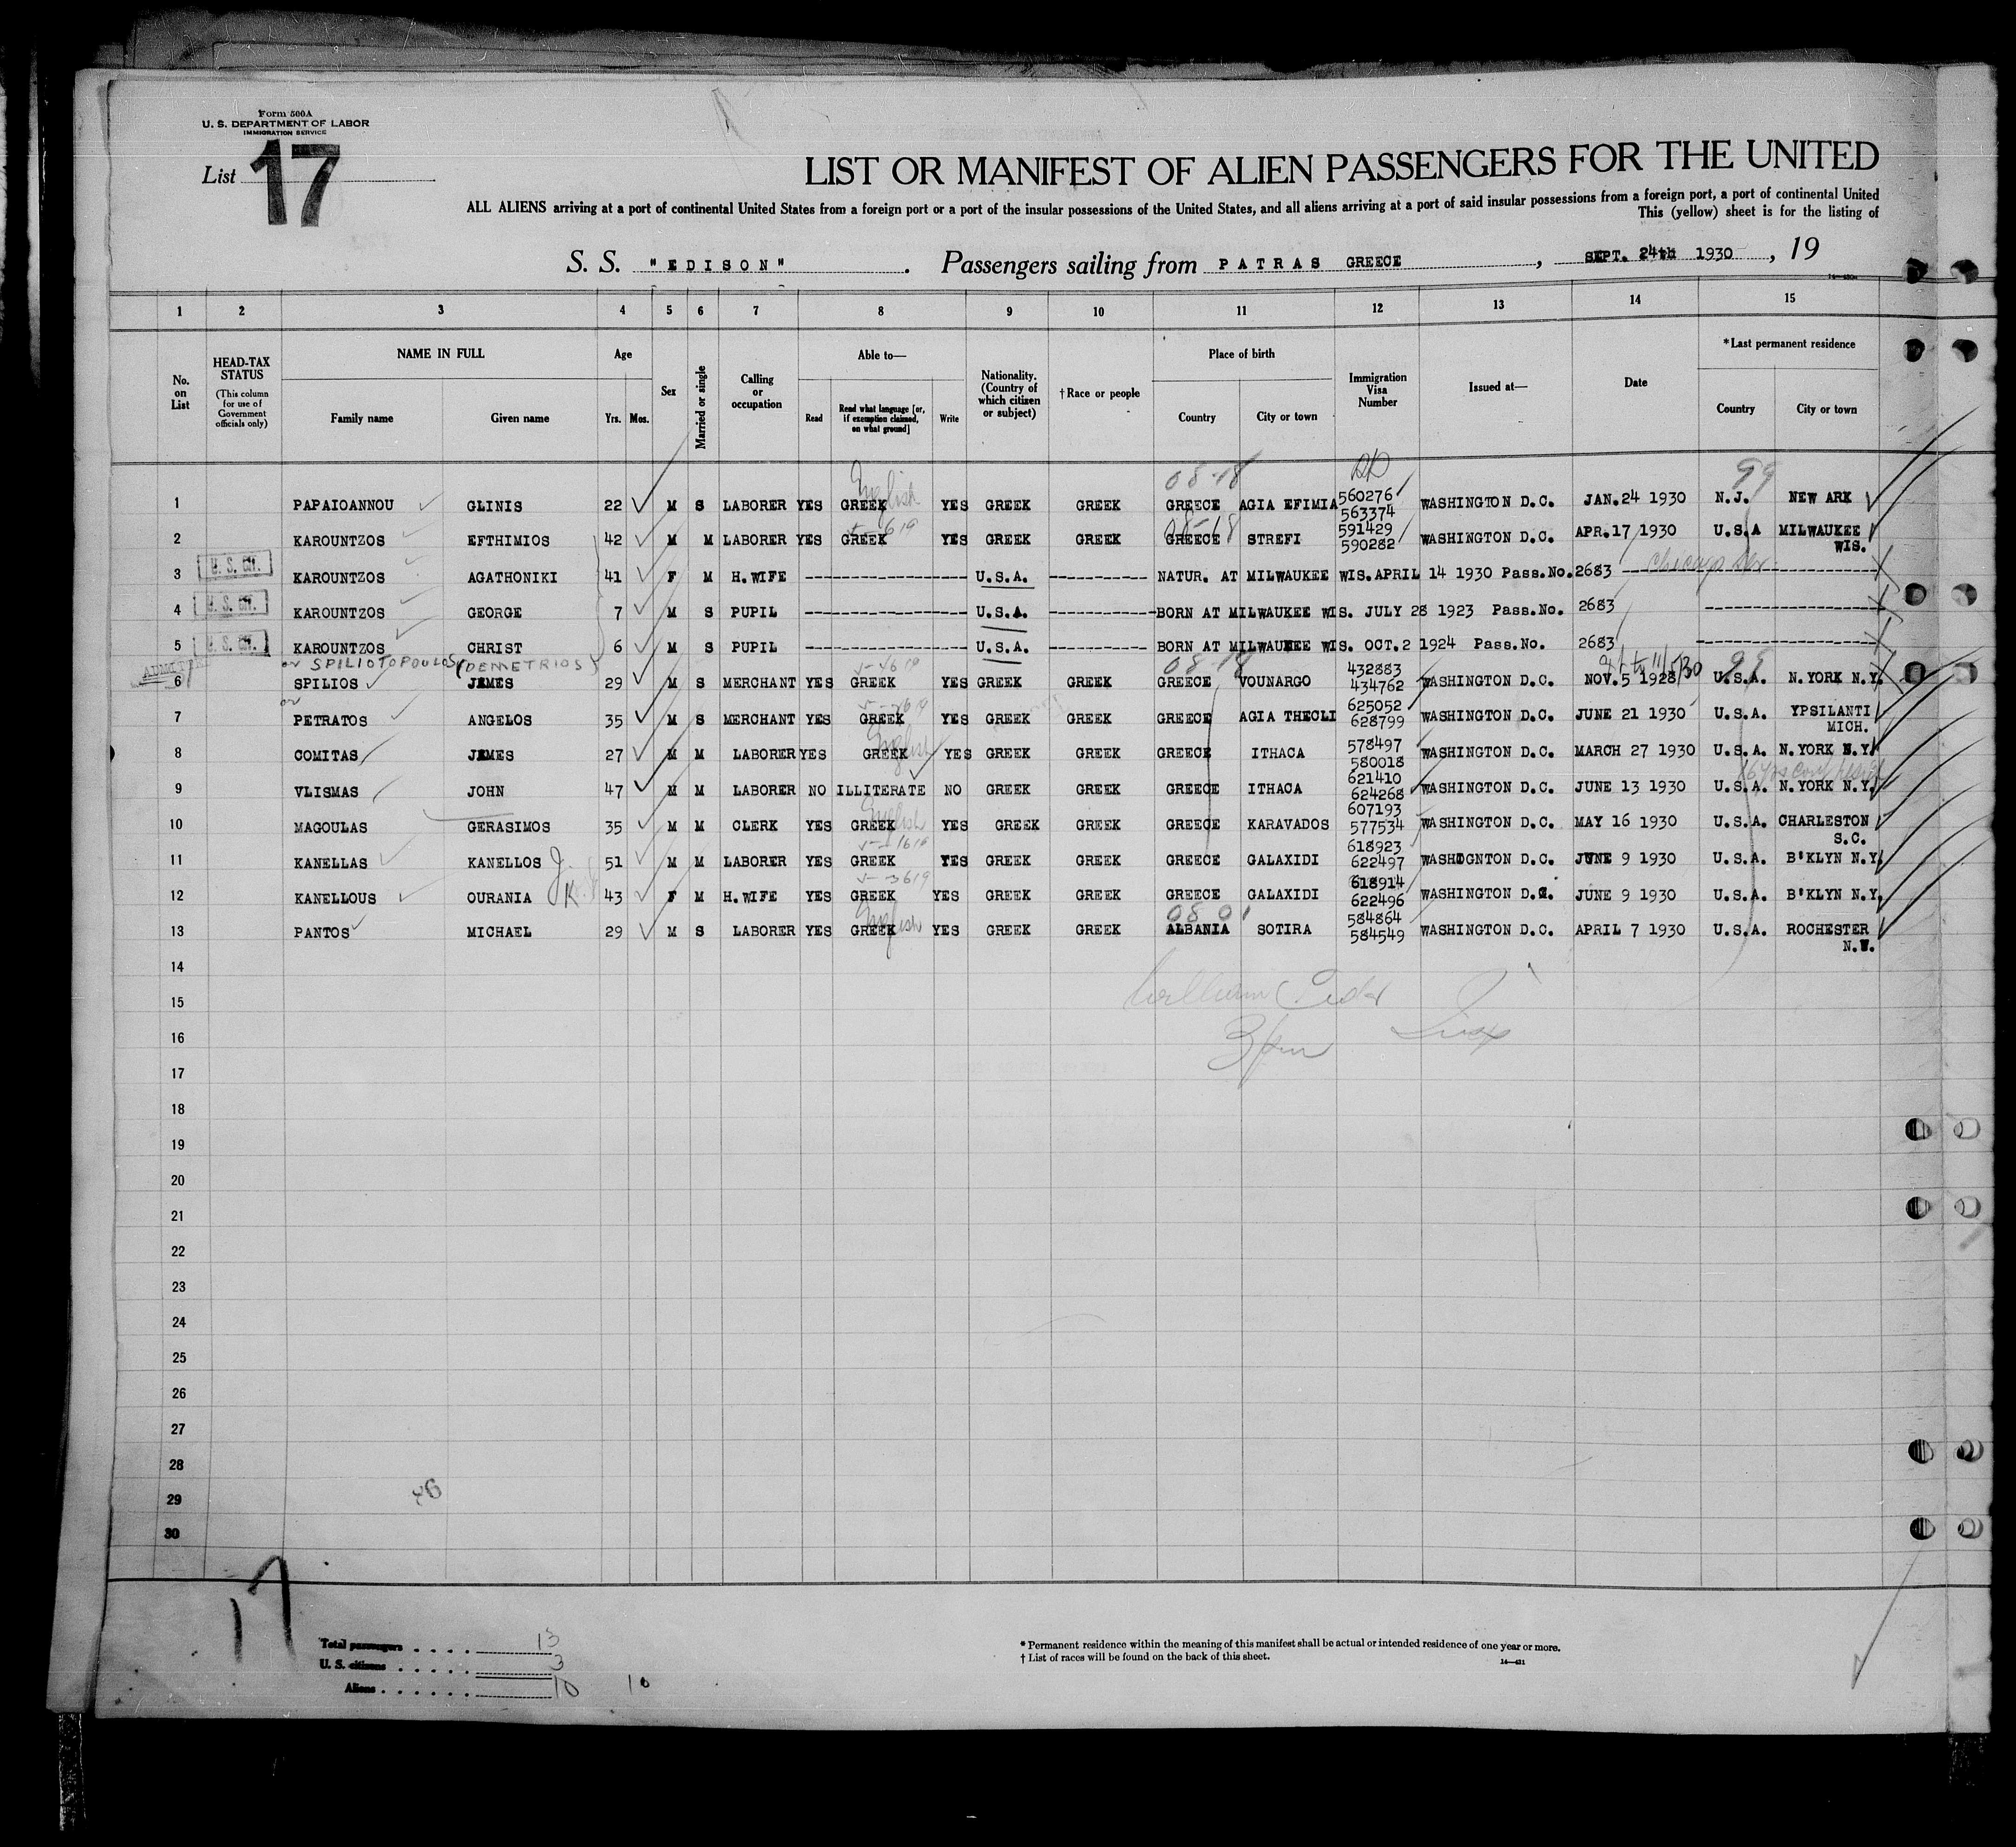 Form 500A
U. S. DEPARTMENT OF LABOR
IMMIGRATION SERVICE
List 17
LIST OR MANIFEST OF ALIEN PASSENGERS FOR THE UNITED
ALL ALIENS arriving at a port of continental United States from a foreign port or a port of the insular possessions of the United States, and all aliens arriving at a port of said insular possessions from a foreign port, a port of continental United
This (yellow) sheet is for the listing of
S. S. "EDISON" . Passengers sailing from PATRAS GREECE , SEPT. 24th 1930 , 19
1 2 3 4 5 6 7 8 9 10 11 12 13 14 15
No. on List
HEAD-TAX STATUS (This column for use of Government officials only)
NAME IN FULL Family name Given name
Age Yrs. Mos.
Sex
Married or single
Calling or occupation
Able to— Read Read what language [or, if exemption claimed, on what ground] Write
Nationality. (Country of which citizen or subject)
†Race or people
Place of birth Country City or town
Immigration Visa Number
Issued at—
Date
*Last permanent residence Country City or town
English 08-18 99
1 PAPAIOANNOU GLINIS 22 M S LABORER YES GREEK YES GREEK GREEK GREECE AGIA EFIMIA 560276 563374 WASHINGTON D.C. JAN.24 1930 N.J. NEW ARK
08-18
2 KAROUNTZOS EFTHIMIOS 42 M M LABORER YES GREEK YES GREEK GREEK GREECE STREFI 591429 590282 WASHINGTON D.C. APR.17 1930 U.S.A MILWAUKEE WIS.
3 U. S. CIT. KAROUNTZOS AGATHONIKI 41 F M H.WIFE U.S.A. NATUR. AT MILWAUKEE WIS.APRIL 14 1930 Pass.No.2683
4 U. S. CIT. KAROUNTZOS GEORGE 7 M S PUPIL U.S.A. BORN AT MILWAUKEE WIS. JULY 28 1923 Pass.No. 2683
5 U. S. CIT. KAROUNTZOS CHRIST 6 M S PUPIL U.S.A. BORN AT MILWAUKEE WIS. OCT.2 1924 Pass.No. 2683
ADMITTED or SPILIOTOPOULOS (DEMETRIOS) 08-18 99
6 SPILIOS JAMES 29 M S MERCHANT YES GREEK YES GREEK GREEK GREECE VOUNARGO 432883 434762 WASHINGTON D.C. NOV.5 1928 U.S.A. N.YORK N.Y.
or
7 PETRATOS ANGELOS 35 M S MERCHANT YES GREEK YES GREEK GREEK GREECE AGIA THECLI 625052 628799 WASHINGTON D.C. JUNE 21 1930 U.S.A. YPSILANTI MICH.
English
8 COMITAS JAMES 27 M M LABORER YES GREEK YES GREEK GREEK GREECE ITHACA 578497 580018 WASHINGTON D.C. MARCH 27 1930 U.S.A. N.YORK N.Y.
9 VLISMAS JOHN 47 M M LABORER NO ILLITERATE NO GREEK GREEK GREECE ITHACA 621410 624268 WASHINGTON D.C. JUNE 13 1930 U.S.A. N.YORK N.Y.
English
10 MAGOULAS GERASIMOS 35 M M CLERK YES GREEK YES GREEK GREEK GREECE KARAVADOS 607193 577534 WASHINGTON D.C. MAY 16 1930 U.S.A. CHARLESTON S.C.
11 KANELLAS KANELLOS J. 51 M M LABORER YES GREEK YES GREEK GREEK GREECE GALAXIDI 618923 622497 WASHIOGNTON D.C. JUNE 9 1930 U.S.A. B'KLYN N.Y.
12 KANELLOUS OURANIA K. 43 F M H.WIFE YES GREEK YES GREEK GREEK GREECE GALAXIDI 618914 622496 WASHINGTON D.C. JUNE 9 1930 U.S.A. B'KLYN N.Y.
English 08 01
13 PANTOS MICHAEL 29 M S LABORER YES GREEK YES GREEK GREEK ALBANIA SOTIRA 584864 584549 WASHINGTON D.C. APRIL 7 1930 U.S.A. ROCHESTER N.Y.
14
15
16
17
18
19
20
21
22
23
24
25
26
27
28
29
30
17
Total passengers 13
U. S. citizens 3
Aliens 10 10
* Permanent residence within the meaning of this manifest shall be actual or intended residence of one year or more.
† List of races will be found on the back of this sheet.
14—431